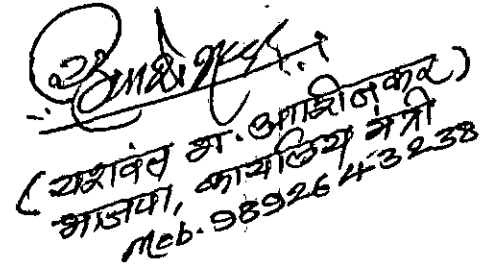 (यशवंत भ. आशीनकर)
भाजपा, कार्यालय मंत्री
Mob. 9892643238